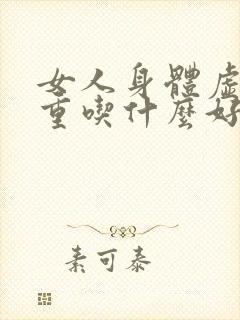 女人身體虛
重喫什麼好
素可泰